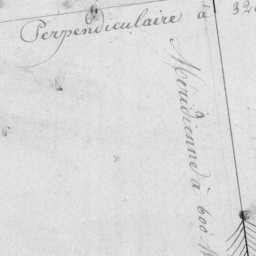 Perpendiculaire à 320
Meridienne à 600